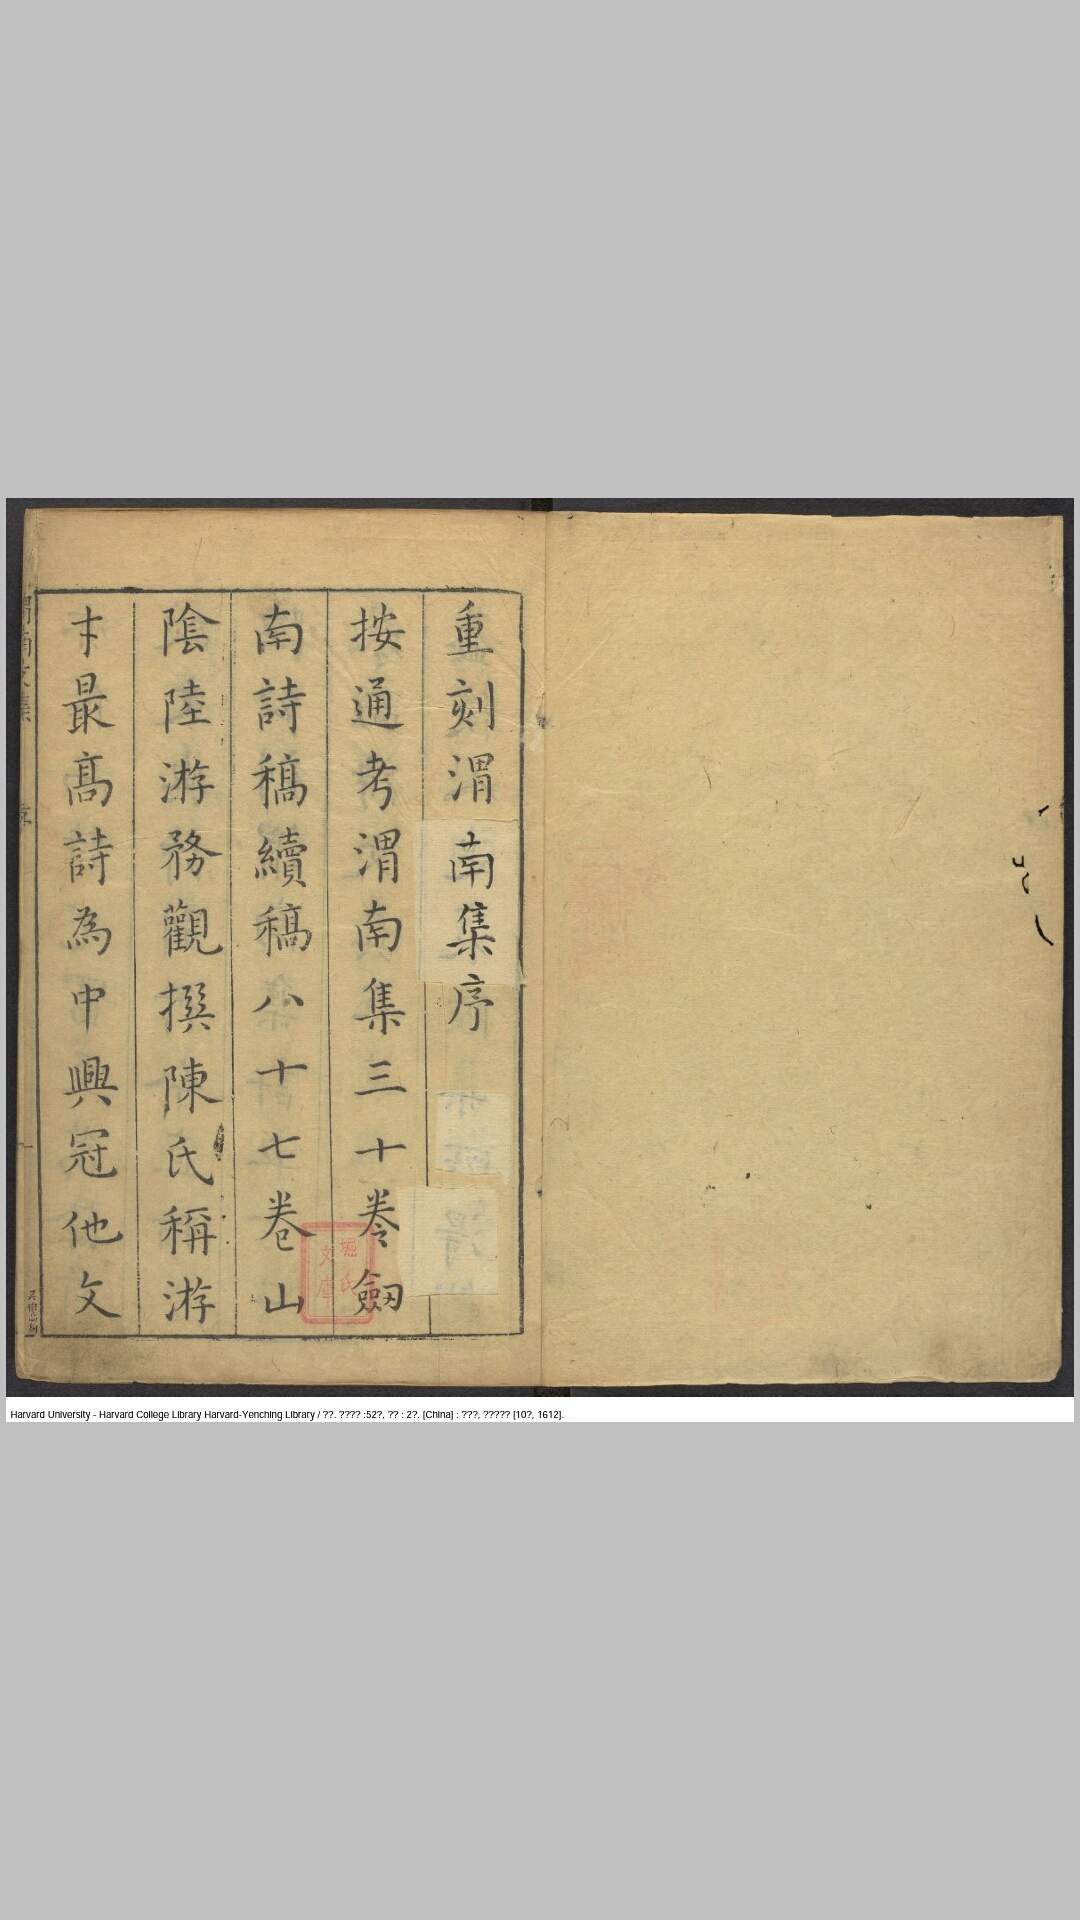 重刻渭南集序
按通考渭南集三十卷劔
南詩稿續稿八十七卷山
陰陸游務觀撰陳氏稱游
才最高詩為中興冠他文
堀氏
文庫
Harvard University - Harvard College Library Harvard-Yenching Library / ??. ???? :52?, ?? : 2?. [China] : ???, ????? [10?, 1612].